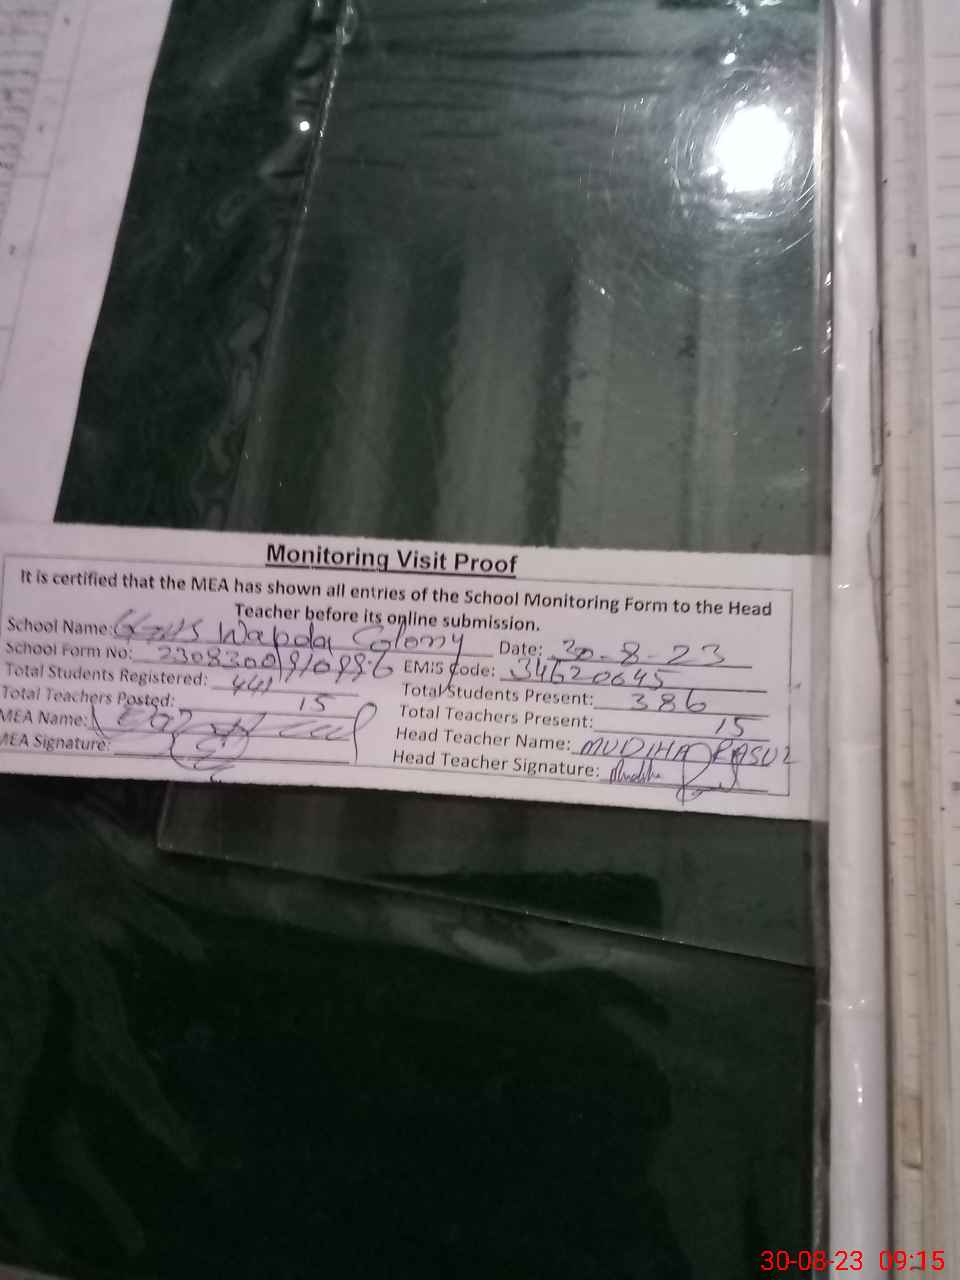 Monitoring Visit Proof
It is certified that the MEA has shown all entries of the School Monitoring Form to the Head
Teacher before its online submission.
School Name: Wapda Colony Date: 30-8-23
School Form No: EMIS Code: 34620645
Total Students Registered: 441 Total Students Present: 386
Total Teachers Posted: 15 Total Teachers Present: 15
MEA Name: Head Teacher Name: MUDIHA RASUL
MEA Signature: Head Teacher Signature:
30-08-23 09:15